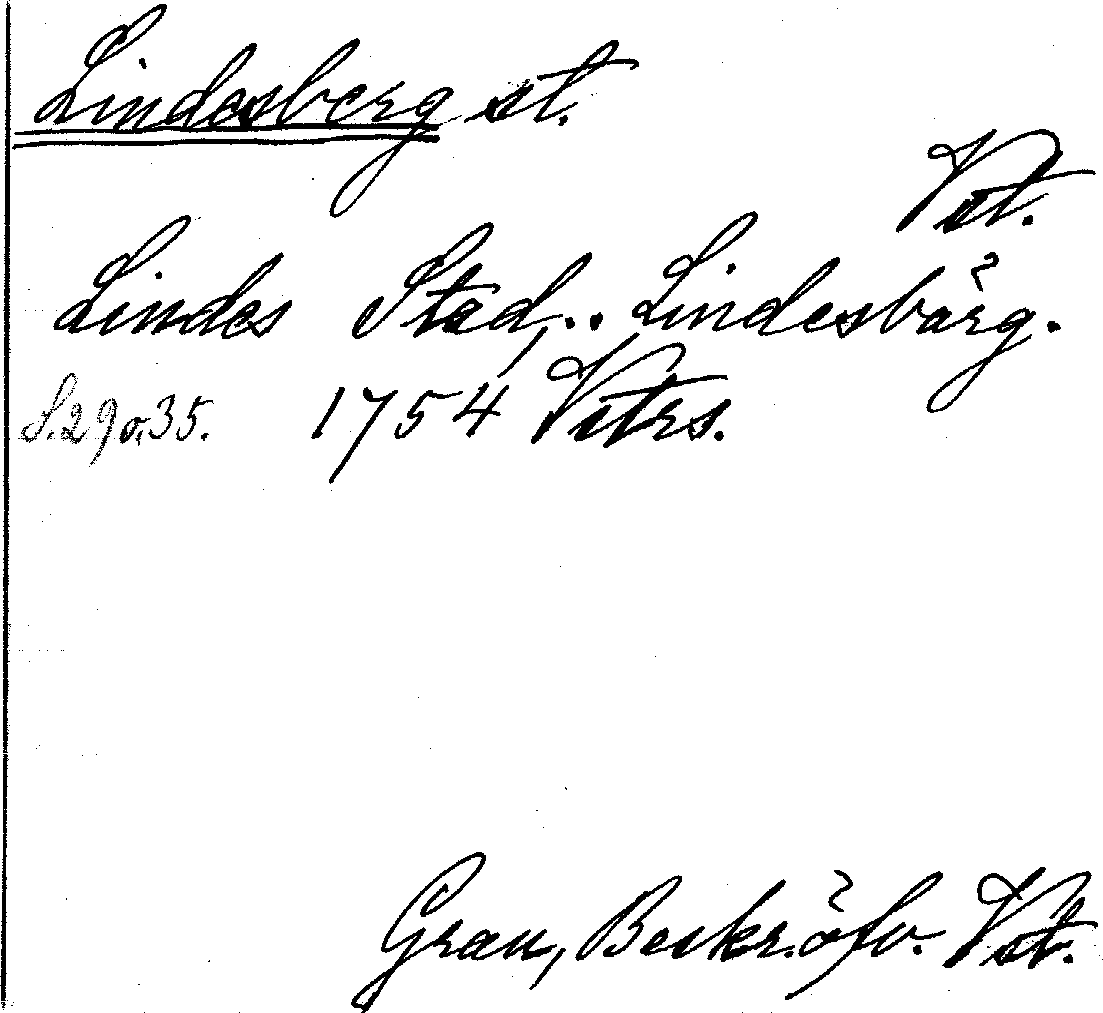 Lindesberg st.
Vst.
Lindes Stad,.. Lindesbärg.
S. 29 o. 35. 1754 Vstrs.
Grau, Beskr. öfv. Vst.